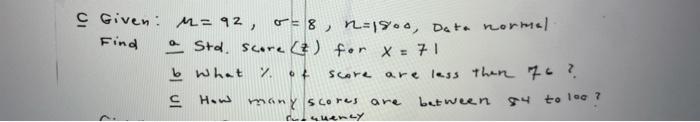 C Given: M = 92, σ = 8, n=1800, Data normal
Find a Std. Score (z) for X = 71
b What % of score are less then 76?
c How many scores are between 84 to 100?